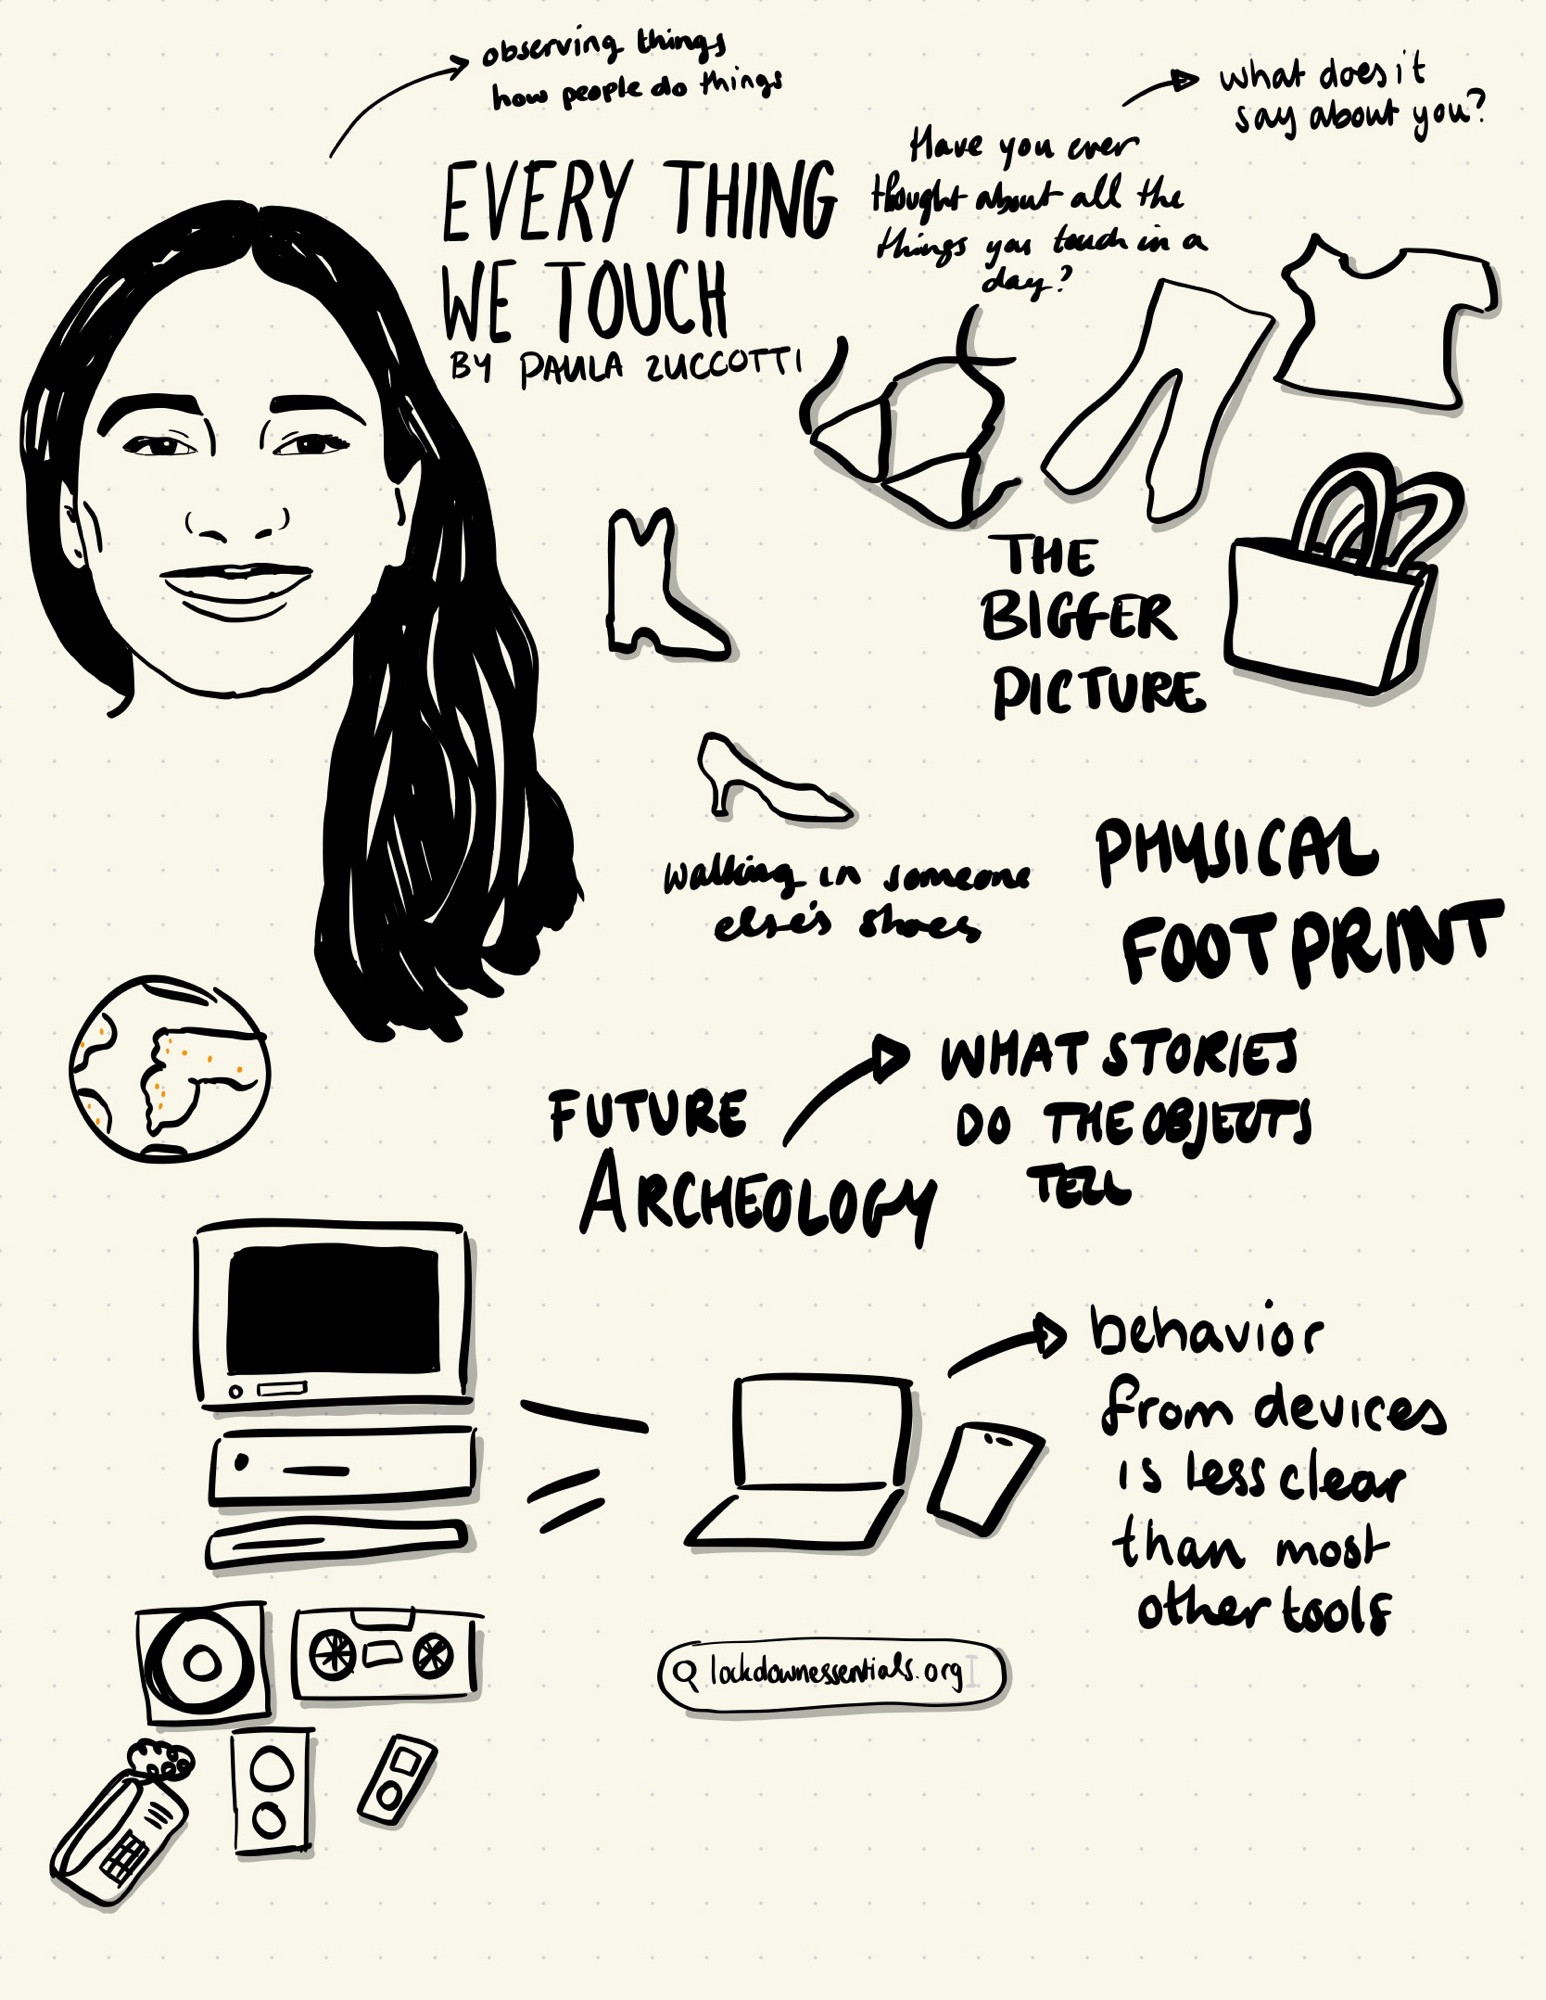 observing things
how people do things
what does it
say about you?
Have you ever
thought about all the
things you touch in a
day?
EVERY THING
WE TOUCH
BY PAULA ZUCCOTTI
THE
BIGGER
PICTURE
walking in someone
else's shoes
PHYSICAL
FOOTPRINT
FUTURE
ARCHEOLOGY
WHAT STORIES
DO THE OBJECTS
TELL
behavior
from devices
is less clear
than most
other tools
lockdownessentials.org